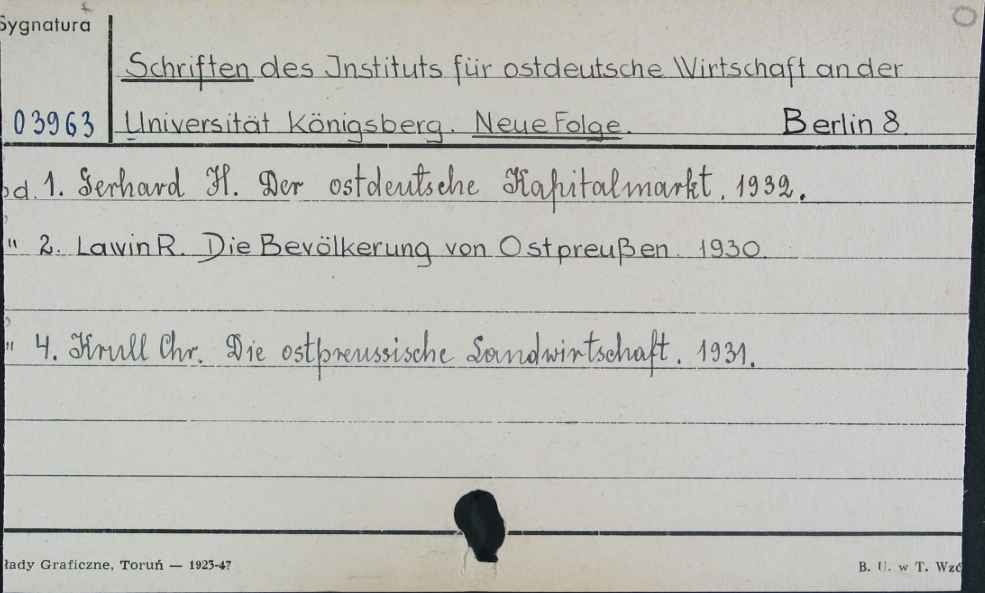 Sygnatura
Schriften des Instituts für ostdeutsche Wirtschaft an der
03963 Universität Königsberg. Neue Folge. Berlin 8.
bd. 1. Gerhard H. Der ostdeutsche Kapitalmarkt. 1932.
" 2. Lawin R. Die Bevölkerung von Ostpreußen. 1930.
" 4. Krull Chr. Die ostpreussische Landwirtschaft. 1931.
łady Graficzne, Toruń — 1923-47 B. U. w T. Wzó